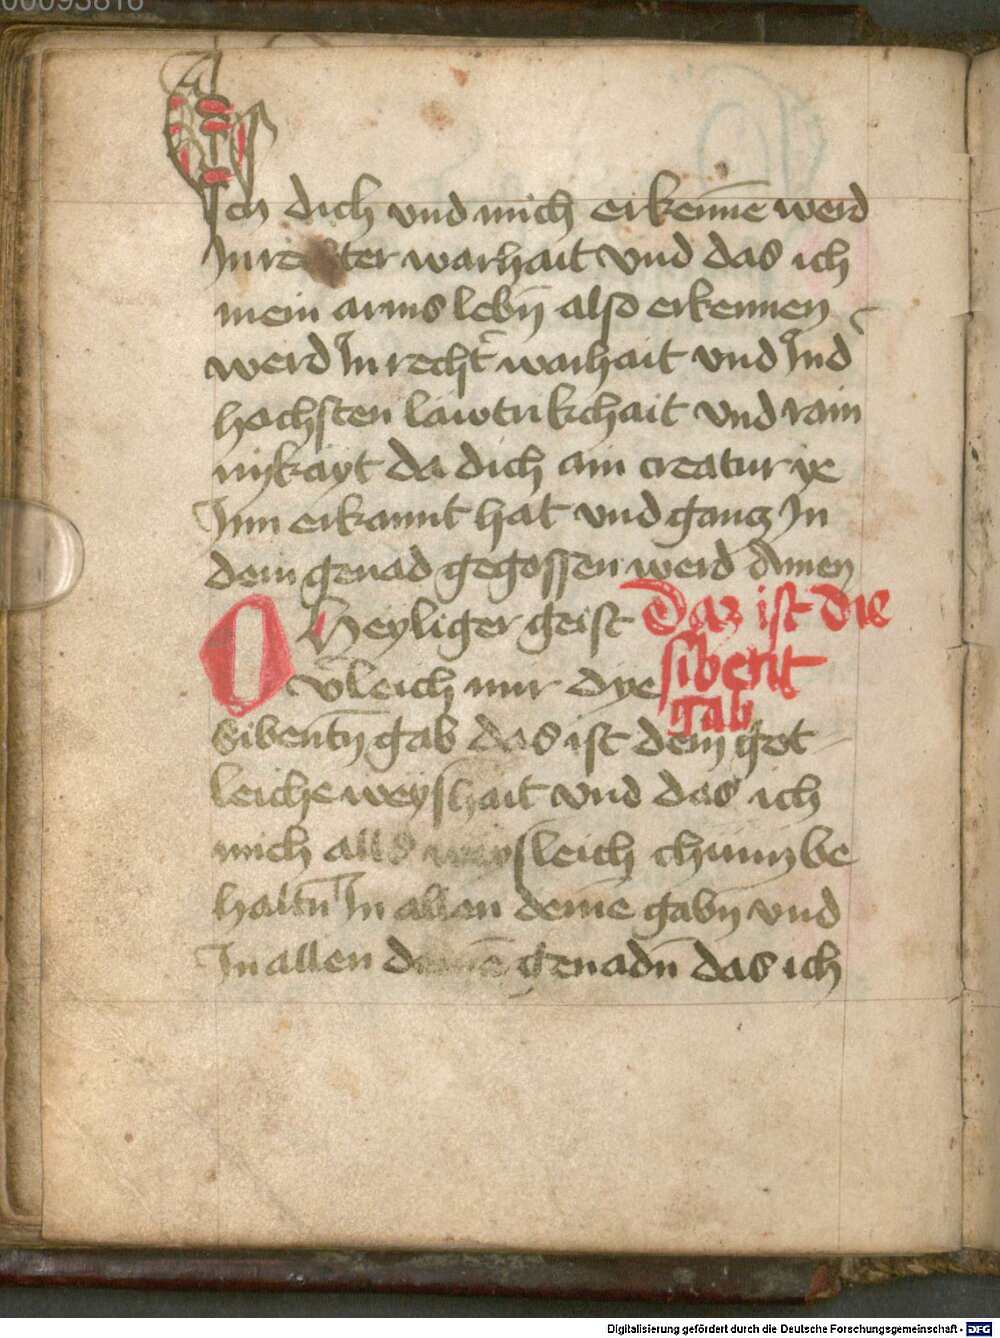 00093816
Ich dich vnd mich erkenne̅ werd
In rechter warhait vnd das ich
mein arms lebn̅ also erkennen
werd In recht' warhait vnd Ind'
hachsten lawtrikchait vnd rain
nykayt da dich ain creatur ye
Inn erkannt hat vnd gancz In
dein genad gegossen werd Amen
O Heyliger geist Daz ist die
v̈leich mir dye sibent
gab
Sibentn̅ gab das ist dein got
leiche weyshait vnd das ich
mich alls weysleich chunn be
haltn̅ In allen deine̅ gabn̅ vnd
In allen deine̅ genadn̅ das ich
Digitalisierung gefördert durch die Deutsche Forschungsgemeinschaft - DFG